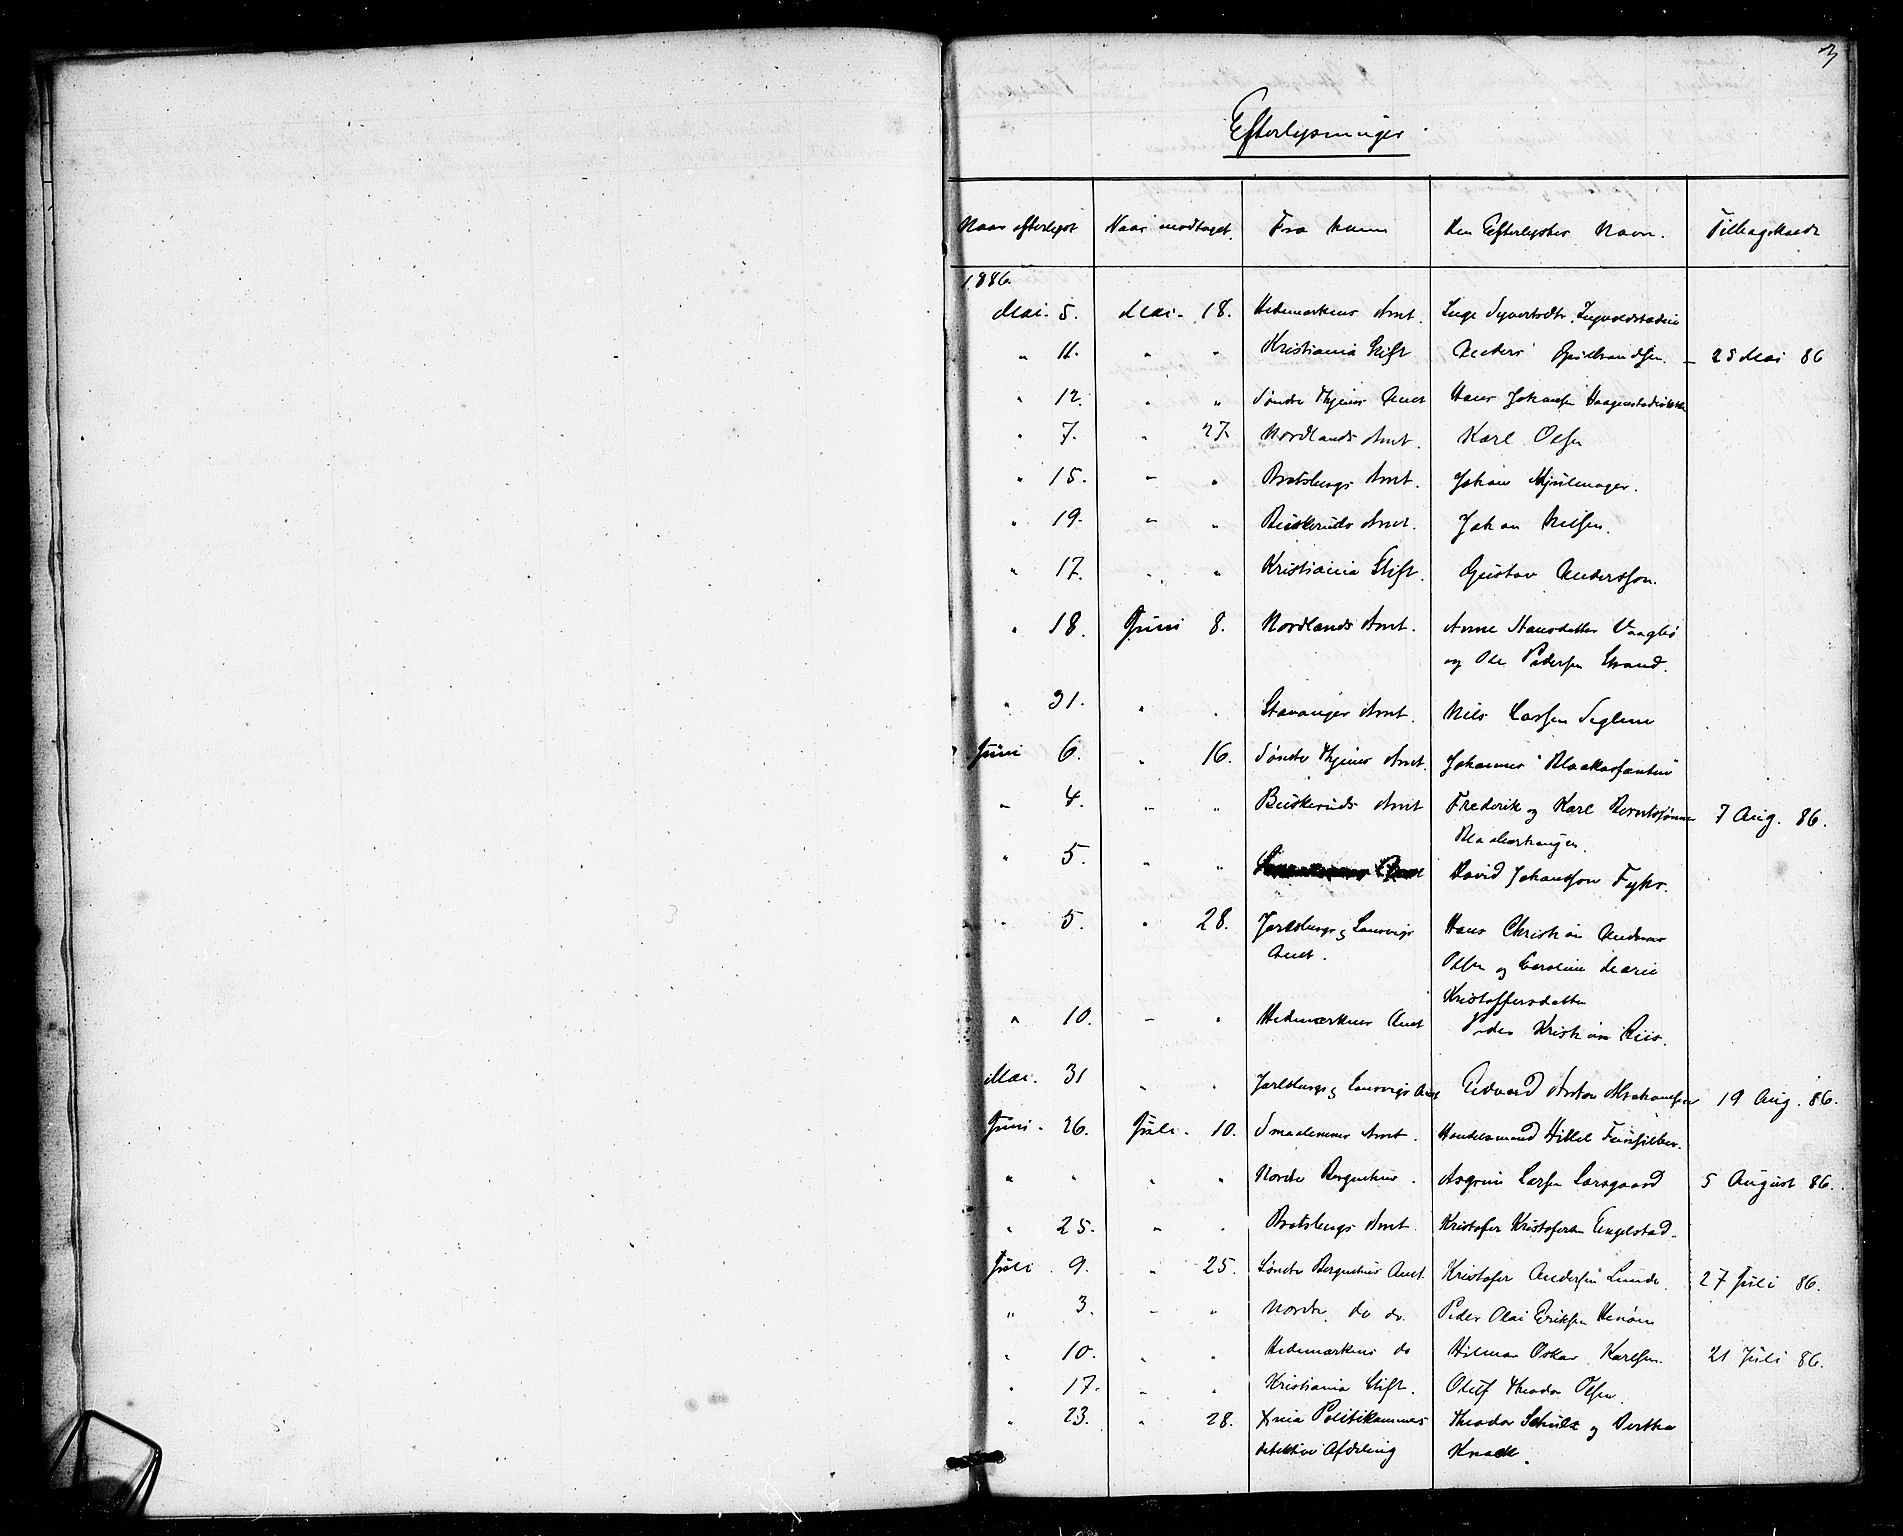 3
Efterlysninger.
Naar efterlyst Naar modtaget. Fra hvem Den Efterlystes Navn. Tilbagekaldt
1886
Mai. 5. Mai - 18. Hedemarkens Amt. Inge Syvertsdtr.
" 11. " " Kristiania Stift Anders Gulbrandsen. - 25 Mai 86
" 12. " " Søndre Thjems Amt Hans Johansen
" 7. " 27. Nordlands Amt. Karl Olsen
" 15. - " Bratsbergs Amt. Johan Hjulmager.
" 19. " " Buskeruds Amt. Johan Nilsen.
" 17. " " Kristiania Stift. Gustav Andersson.
" 18. Juni 8. Nordlands Amt. Anne Hansdatter Vaagbø
og Ole Pedersen Strand.
" 31. " " Stavanger Amt. Nils Larsen Seglem
Juni 6. " 16. Søndre Thjems Amt. Johannes
" 4. " " Buskeruds Amt Frederik og Karl Berntssønner 7 Aug. 86.
" 5. " " David Johansson Fyhr.
" 5. " 28. Jarlsbergs og Laurvigs Hans Christian Andreas
Amt. Olsen og Caroline Marie
Kristoffersdatter
" 10. - " Hedemarkens Amt Peder Kristian Riis.
Mai. 31 " " Jarlsbergs og Laurvigs Amt Edvard Anton Abrahamsen 19 Aug. 86.
Juni - 26. Juli - 10. Smaalenenes Amt. Handelsmand Hillel Feinsilber.
" " " " Nordre Bergenhus. Larsen Larsgaard 5 August 86.
" 25. " " Bratsbergs Amt. Kristofer Kristofersen Engelstad.
Juli 9. " 25. Søndre Bergenhus Amt. Kristofer Andersen Lunde. 27 Juli 86.
" 3. - " Nordre do do. Peder Olai Eriksen
" 10. " " Hedemarkens do Hilmar Oskar Karlsen. 21 Juli 86.
" 17. " " Kristiania Stift. Oluf Theodor Olsen.
" 23. " 28. Xnia Politikammers Theodor Schulz og Berthea
detektive Afdeling Knadl.